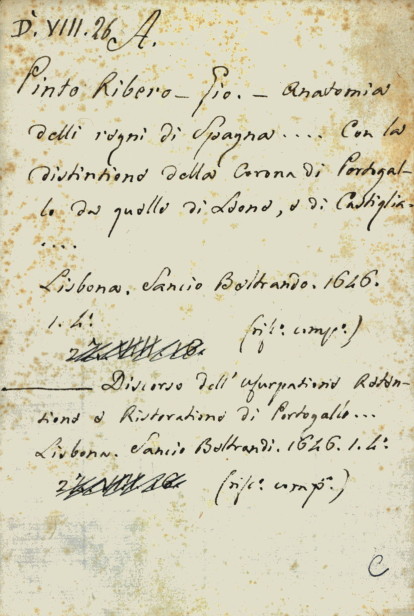 D. VIII. 26 A.
Pinto Ribero – Gio. – Anatomia
delli regni di Spagna .... Con la
distintione della Corona di Portogal-
lo da quelle di Leone, e di Castiglia.
....
Lisbona. Sancio Beltrando. 1646.
1. 4.º
(rifº. compº.)
Discorso dell' usurpatione Reten-
tione e Ristoratione di Portogallo...
Lisbona. Sancio Beltrandi. 1646. 1. 4.º
(rifº. compº.)
C